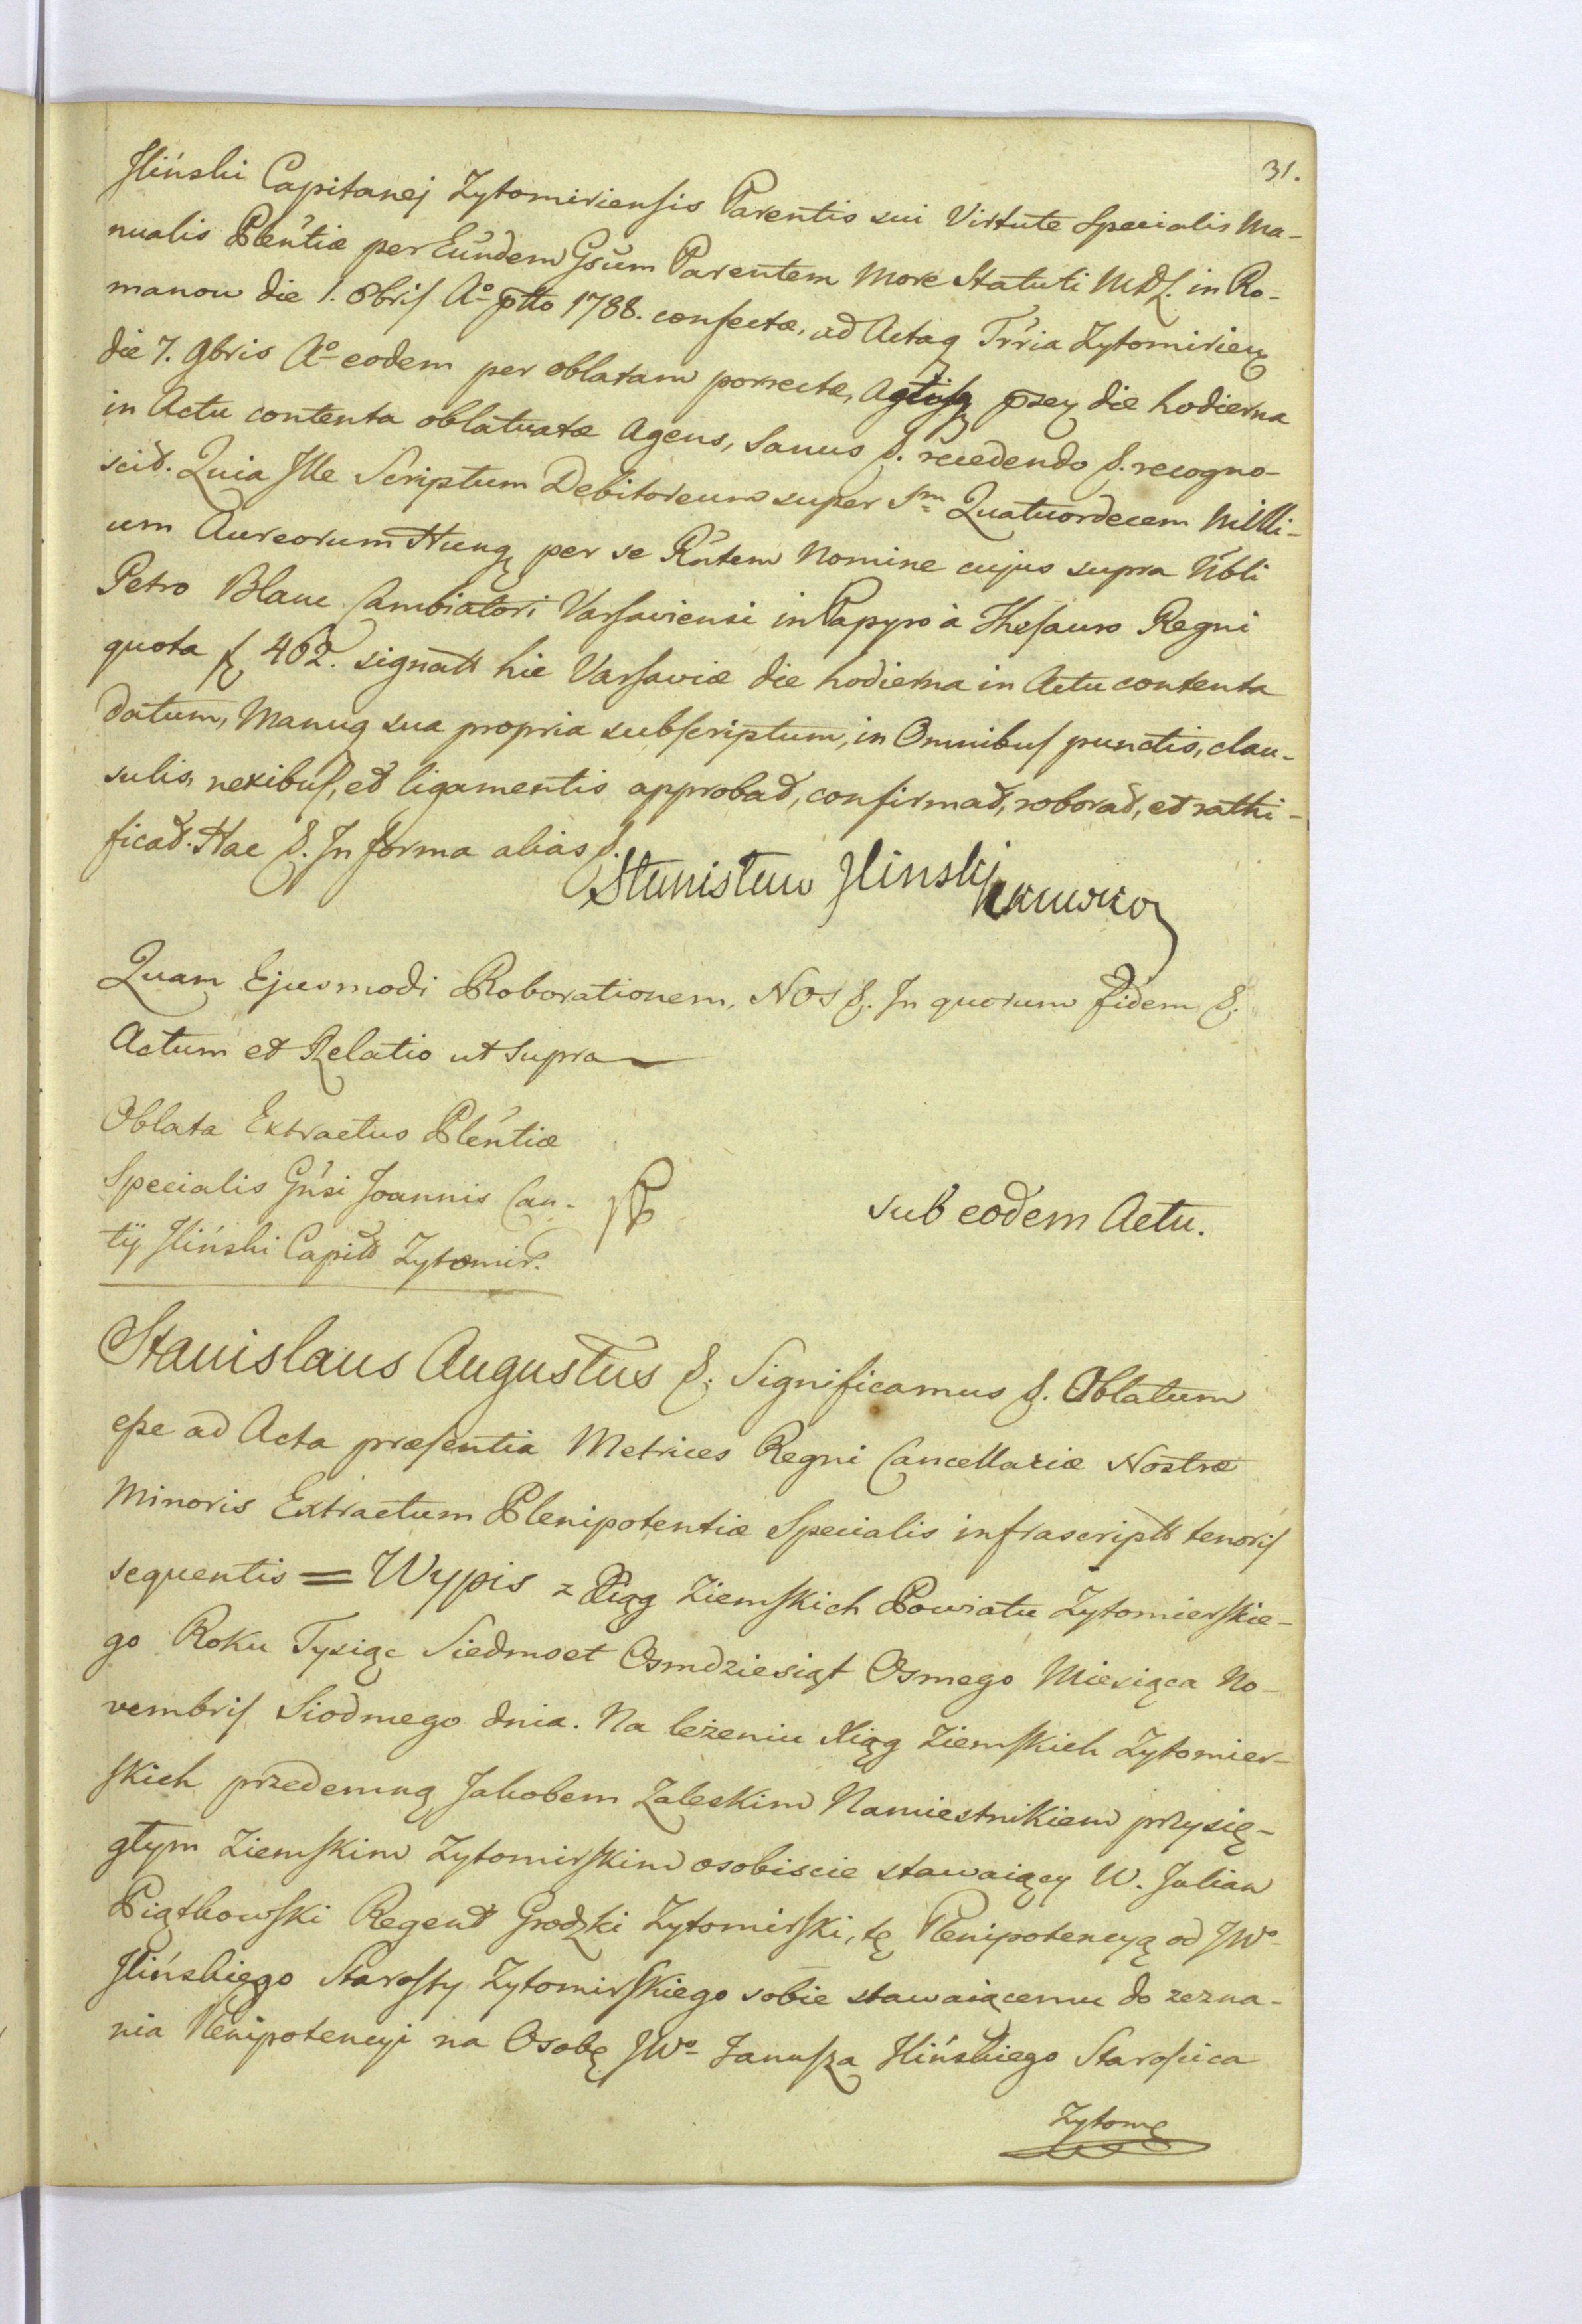 31.
Jliński Capitanej Zytomiriensis Parentis sui Virtute Specialis Ma-
nualis Pleńtiæ per Eundem Gsum Parentem More Statuti MDL. in Ro-
manow die 1. 8bris Aº p̄tto 1788. confectæ, ad Actaq Trria Zytomirien
die 7. 9bris Aº eodem per oblatam porrectæ, Actisq p̄sey die hodierna
in Actu contenta oblatuatæ Agens, Sanus &. recedendo &. recogno-
scit. Quia Jlle Scriptum Debitoreum super Sm Quatuordecem Milli-
um Aureorum Hung per se Rńtem Nomine cujus supra Nbli
Petro Blanc Cambiatori Varsaviensi in Papyro à Thesauro Regni
quota f 462. signatt hic Varsaviæ die hodierna in Actu contenta
datum, Manuq sua propria subscriptum, in Omnibus punctis, clau-
sulis, nexibus, et ligamentis approbat, confirmat, roborat, et rathi-
ficat. Hac &. Jn forma alias &.
Stanisław Jlinskj
Quam Ejusmodi Roborationem, NOS &. Jn quorum fidem &.
Actum et Relatio ut Supra
Oblata Extractus Pleńtiæ
Specialis Gńsi Joannis Can-
tij Jliński Capitt Zytomir.
sub eodem Actu.
Stanislaus Augustus &. Significamus &. Oblatum
esse ad Acta præsentia Metrices Regni Cancellariæ Nostræ
Minoris Extractum Plenipotentiæ Specialis infrascriptt tenoris
sequentis = Wypis z Xiąg Ziemskich Powiatu Zytomierskie-
go Roku Tysiąc Siedmset Osmdziesiąt Osmego Miesiąca No-
vembris Siodmego dnia. Na leżeniu Xiąg Ziemskich Zytomier-
skich przedemną Jakobem Zaleskim Namiestnikiem przysię-
głym Ziemskim Zytomirskim osobiscie stawaiący W. Julian
Piątkowski Regent Grodzki Zytomirski, tę Plenipotencyą od JWº
Jlińskiego Starosty Zytomirskiego sobie stawaiącemu do zezna-
nia Plenipotencyi na Osobę JWº Janusza Jlińskiego Starosica
Zytom